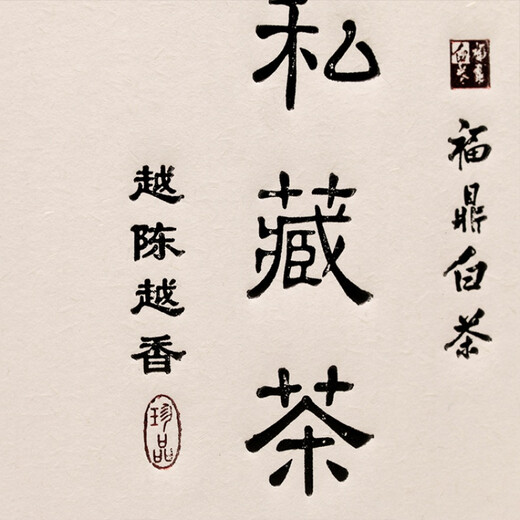 福鼎白茶
福鼎白茶
私藏茶
越陈越香
珍品